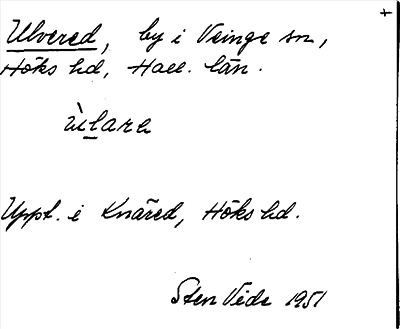 +
Ulvered, by i Veinge sn,
Höks hd, Hall. län.
ùlarə
Uppt. i Knäred, Höks hd.
Sten Vide 1951